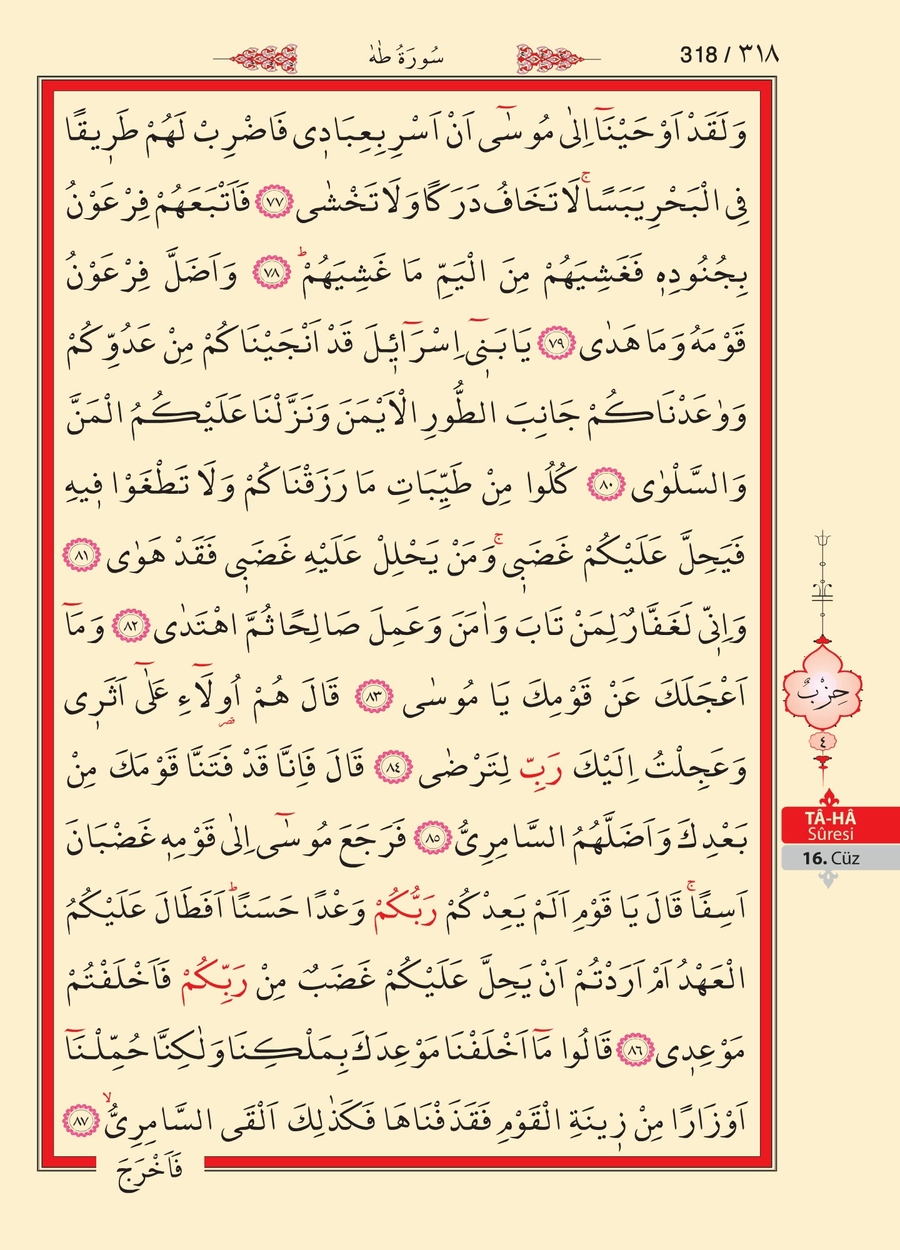 سُورَةُ طٰهٰ
318 / ٣١٨
وَلَقَدْ اَوْحَيْنَٓا اِلٰى مُوسٰٓى اَنْ اَسْرِ بِعِبَادٖى فَاضْرِبْ لَهُمْ طَرٖيقًا
فِى الْبَحْرِ يَبَسًاۚ لَا تَخَافُ دَرَكًا وَلَا تَخْشٰى ﴿٧٧﴾ فَاَتْبَعَهُمْ فِرْعَوْنُ
بِجُنُودِهٖ فَغَشِيَهُمْ مِنَ الْيَمِّ مَا غَشِيَهُمْؕ ﴿٧٨﴾ وَاَضَلَّ فِرْعَوْنُ
قَوْمَهُ وَمَا هَدٰى ﴿٧٩﴾ يَا بَنٖٓى اِسْرَٓائٖلَ قَدْ اَنْجَيْنَاكُمْ مِنْ عَدُوِّكُمْ
وَوٰعَدْنَاكُمْ جَانِبَ الطُّورِ الْاَيْمَنَ وَنَزَّلْنَا عَلَيْكُمُ الْمَنَّ
وَالسَّلْوٰى ﴿٨٠﴾ كُلُوا مِنْ طَيِّبَاتِ مَا رَزَقْنَاكُمْ وَلَا تَطْغَوْا فٖيهِ
فَيَحِلَّ عَلَيْكُمْ غَضَبٖىۚ وَمَنْ يَحْلِلْ عَلَيْهِ غَضَبٖى فَقَدْ هَوٰى ﴿٨١﴾
وَاِنّٖى لَغَفَّارٌ لِمَنْ تَابَ وَاٰمَنَ وَعَمِلَ صَالِحًا ثُمَّ اهْتَدٰى ﴿٨٢﴾ وَمَٓا
اَعْجَلَكَ عَنْ قَوْمِكَ يَا مُوسٰى ﴿٨٣﴾ قَالَ هُمْ اُولَٓاءِ عَلٰٓى اَثَرٖى
قصر
وَعَجِلْتُ اِلَيْكَ رَبِّ لِتَرْضٰى ﴿٨٤﴾ قَالَ فَاِنَّا قَدْ فَتَنَّا قَوْمَكَ مِنْ
بَعْدِكَ وَاَضَلَّهُمُ السَّامِرِىُّ ﴿٨٥﴾ فَرَجَعَ مُوسٰٓى اِلٰى قَوْمِهٖ غَضْبَانَ
اَسِفًاۚ قَالَ يَا قَوْمِ اَلَمْ يَعِدْكُمْ رَبُّكُمْ وَعْدًا حَسَنًاؕ اَفَطَالَ عَلَيْكُمُ
الْعَهْدُ اَمْ اَرَدْتُمْ اَنْ يَحِلَّ عَلَيْكُمْ غَضَبٌ مِنْ رَبِّكُمْ فَاَخْلَفْتُمْ
مَوْعِدٖى ﴿٨٦﴾ قَالُوا مَٓا اَخْلَفْنَا مَوْعِدَكَ بِمَلْكِنَا وَلٰكِنَّا حُمِّلْنَٓا
اَوْزَارًا مِنْ زٖينَةِ الْقَوْمِ فَقَذَفْنَاهَا فَكَذٰلِكَ اَلْقَى السَّامِرِىُّۙ ﴿٨٧﴾
فَاَخْرَجَ
حِزْبٌ
٤
TÂ-HÂ
Sûresi
16. Cüz